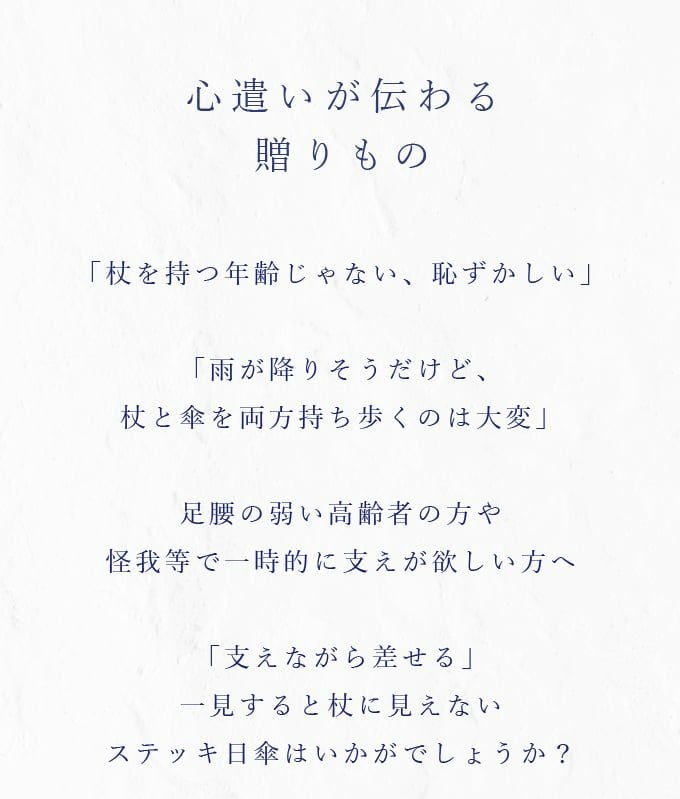 心遣いが伝わる
贈りもの
「杖を持つ年齢じゃない、恥ずかしい」
「雨が降りそうだけど、
杖と傘を両方持ち歩くのは大変」
足腰の弱い高齢者の方や
怪我等で一時的に支えが欲しい方へ
「支えながら差せる」
一見すると杖に見えない
ステッキ日傘はいかがでしょうか？